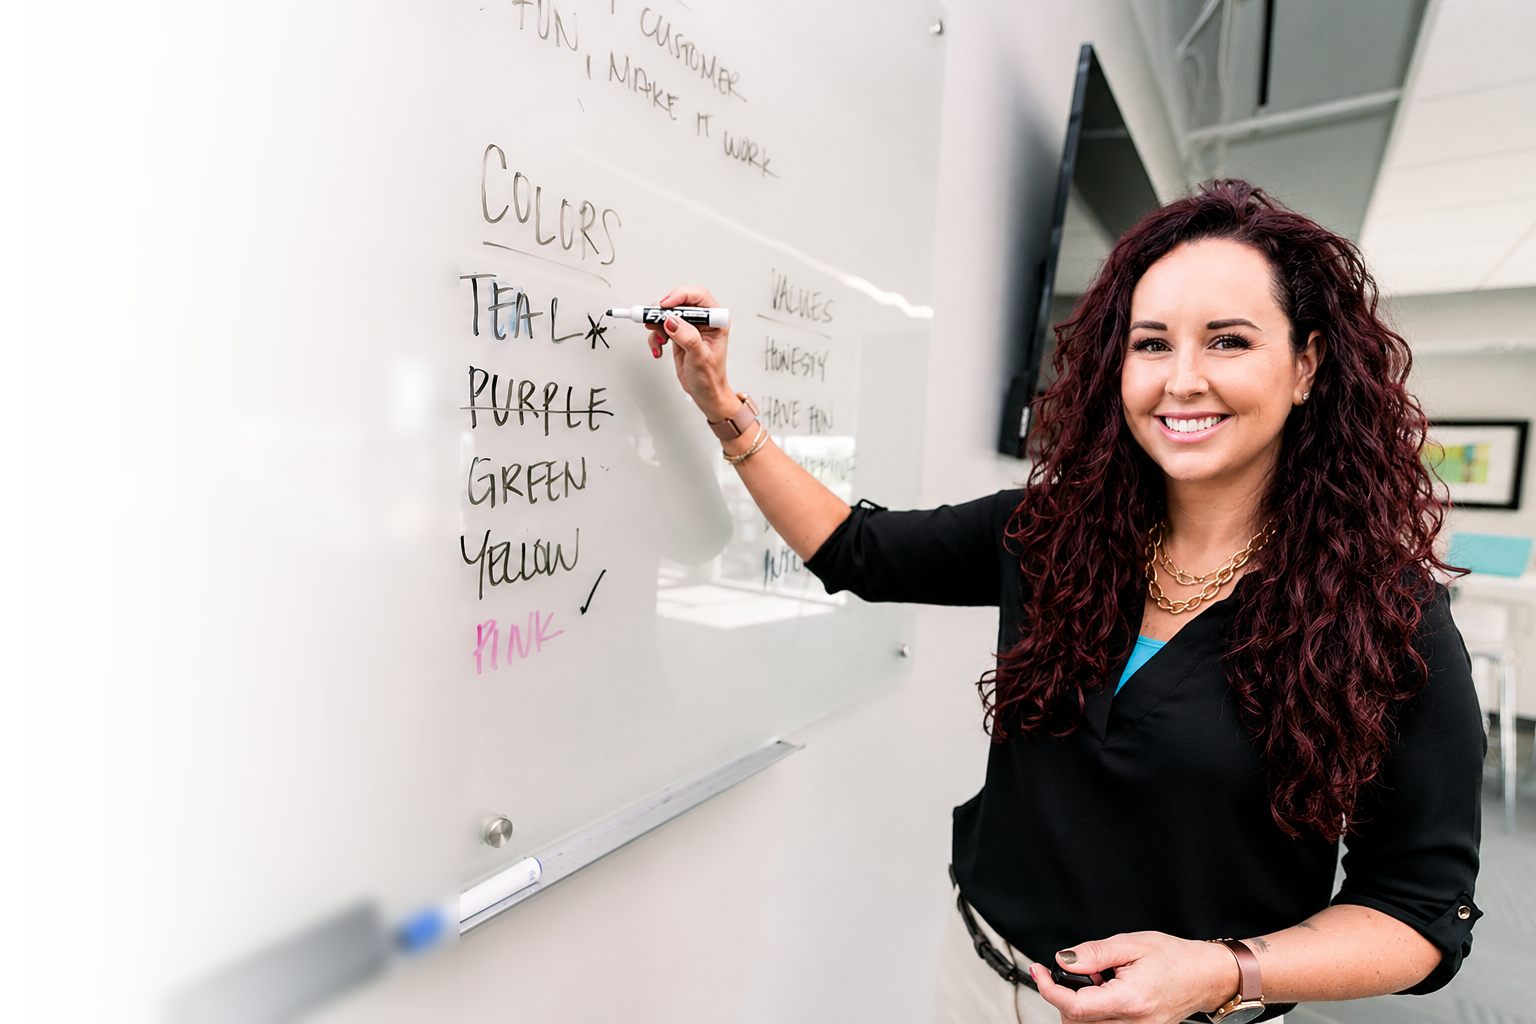 FUN, CUSTOMER
, MAKE IT WORK
COLORS
TEAL*
PURPLE
GREEN
YELLOW
PINK ✓
VALUES
HONESTY
HAVE FUN
EXPO